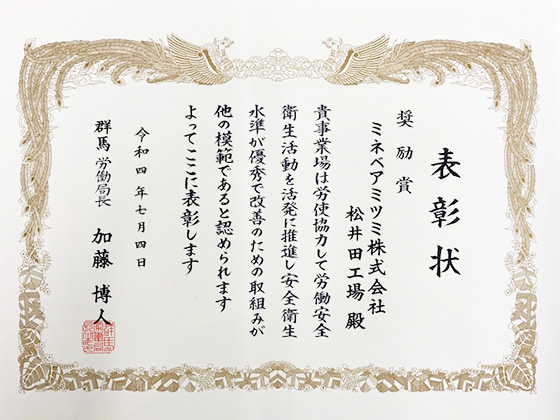 表彰状
奨励賞
ミネベアミツミ株式会社
松井田工場 殿
貴事業場は労使協力して労働安全
衛生活動を活発に推進し安全衛生
水準が優秀で改善のための取組みが
他の模範であると認められます
よってここに表彰します
令和四年七月四日
群馬労働局長 加藤博人